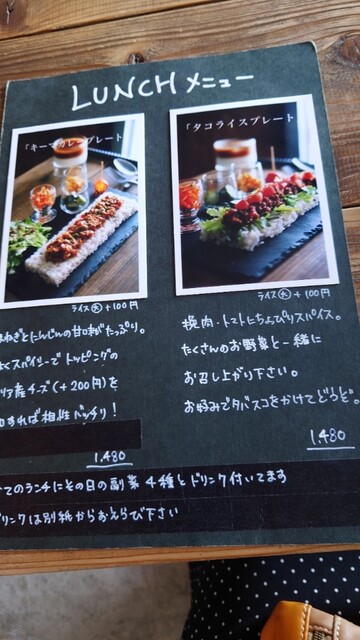 LUNCH メニュー
「キーマカレープレート
「タコライスプレート
ライス大 +100円
ライス大 +100円
ねぎとにんじんの甘味がたっぷり。
くスパイシーで トッピングの
リア産チーズ(+200円)を
すれば相性バッチリ!
1,480
挽肉・トマトにちょぴりスパイス。
たくさんのお野菜と一緒に
お召し上がり下さい。
お好みでタバスコをかけてどうぞ。
1,480
てのランチにその日の副菜4種とドリンク付いてます
リンクは別紙からおえらび下さい